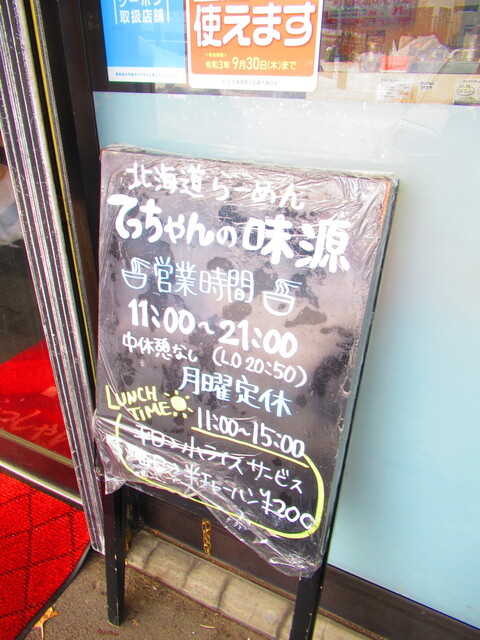 クーポン
取扱店舗
使えます
令和3年9月30日(木)まで
北海道らーめん
てっちゃんの味源
営業時間
11:00~21:00
中休憩なし (LO 20:50)
月曜定休
LUNCH TIME
11:00~15:00
平日→小ライスサービス
半チャーハン¥200